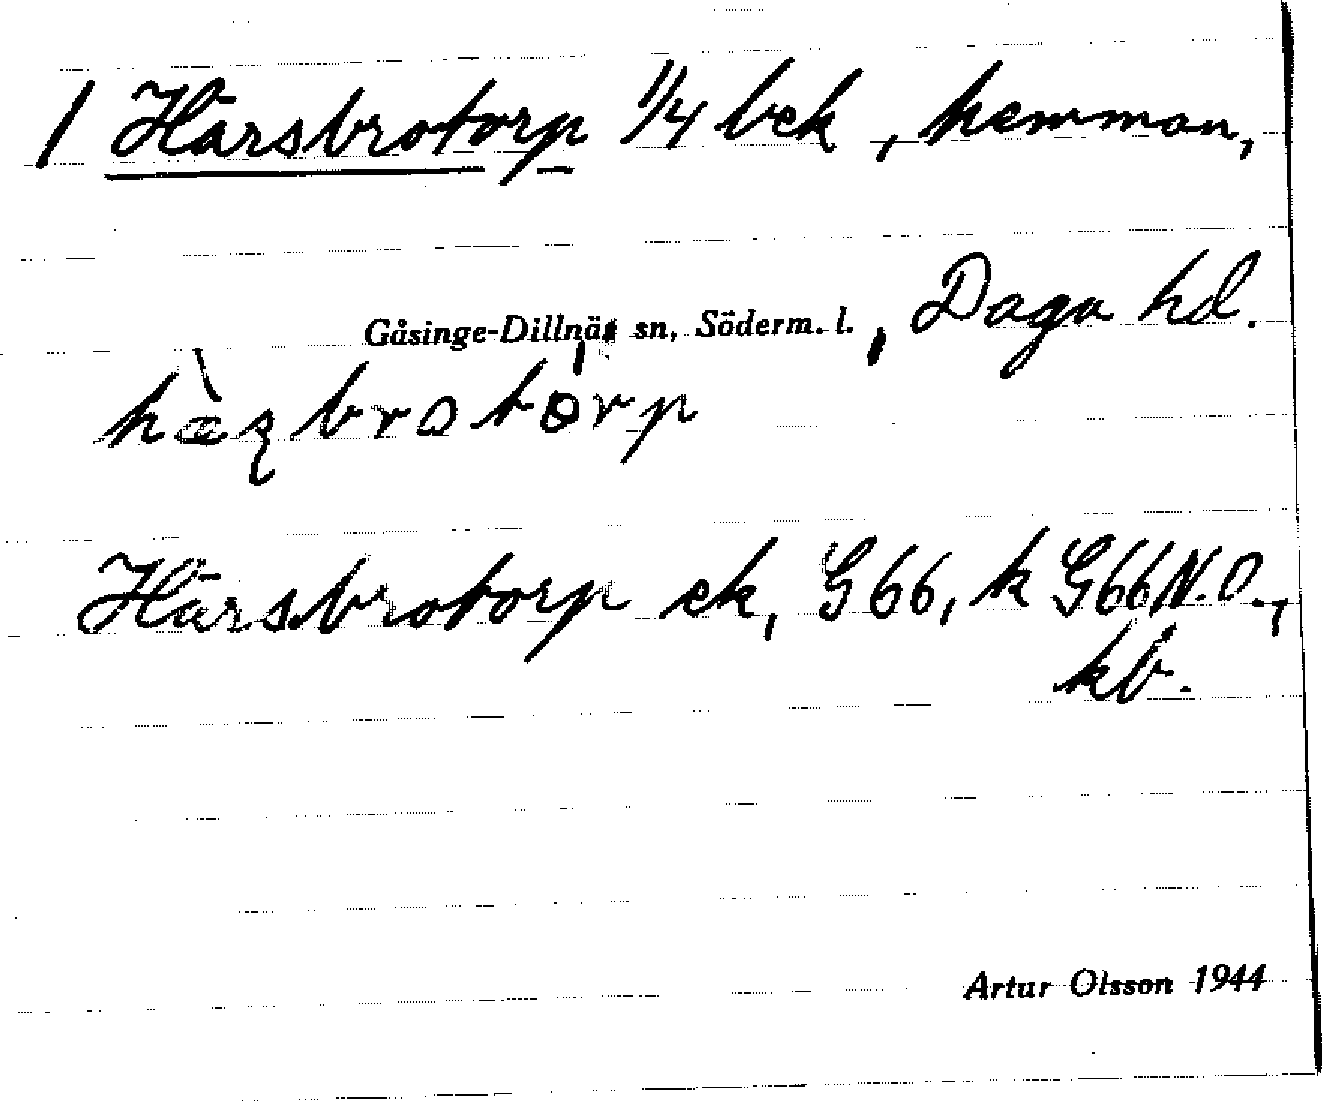 1 Härsbrotorp 1/4 bek, hemman,
Gåsinge-Dillnäs sn, Söderm. l., Daga hd.
hæ̀ʂbrotòrp
Härsbrotorp ek, G66, k G66 N.O.,
kb.
Artur Olsson 1944